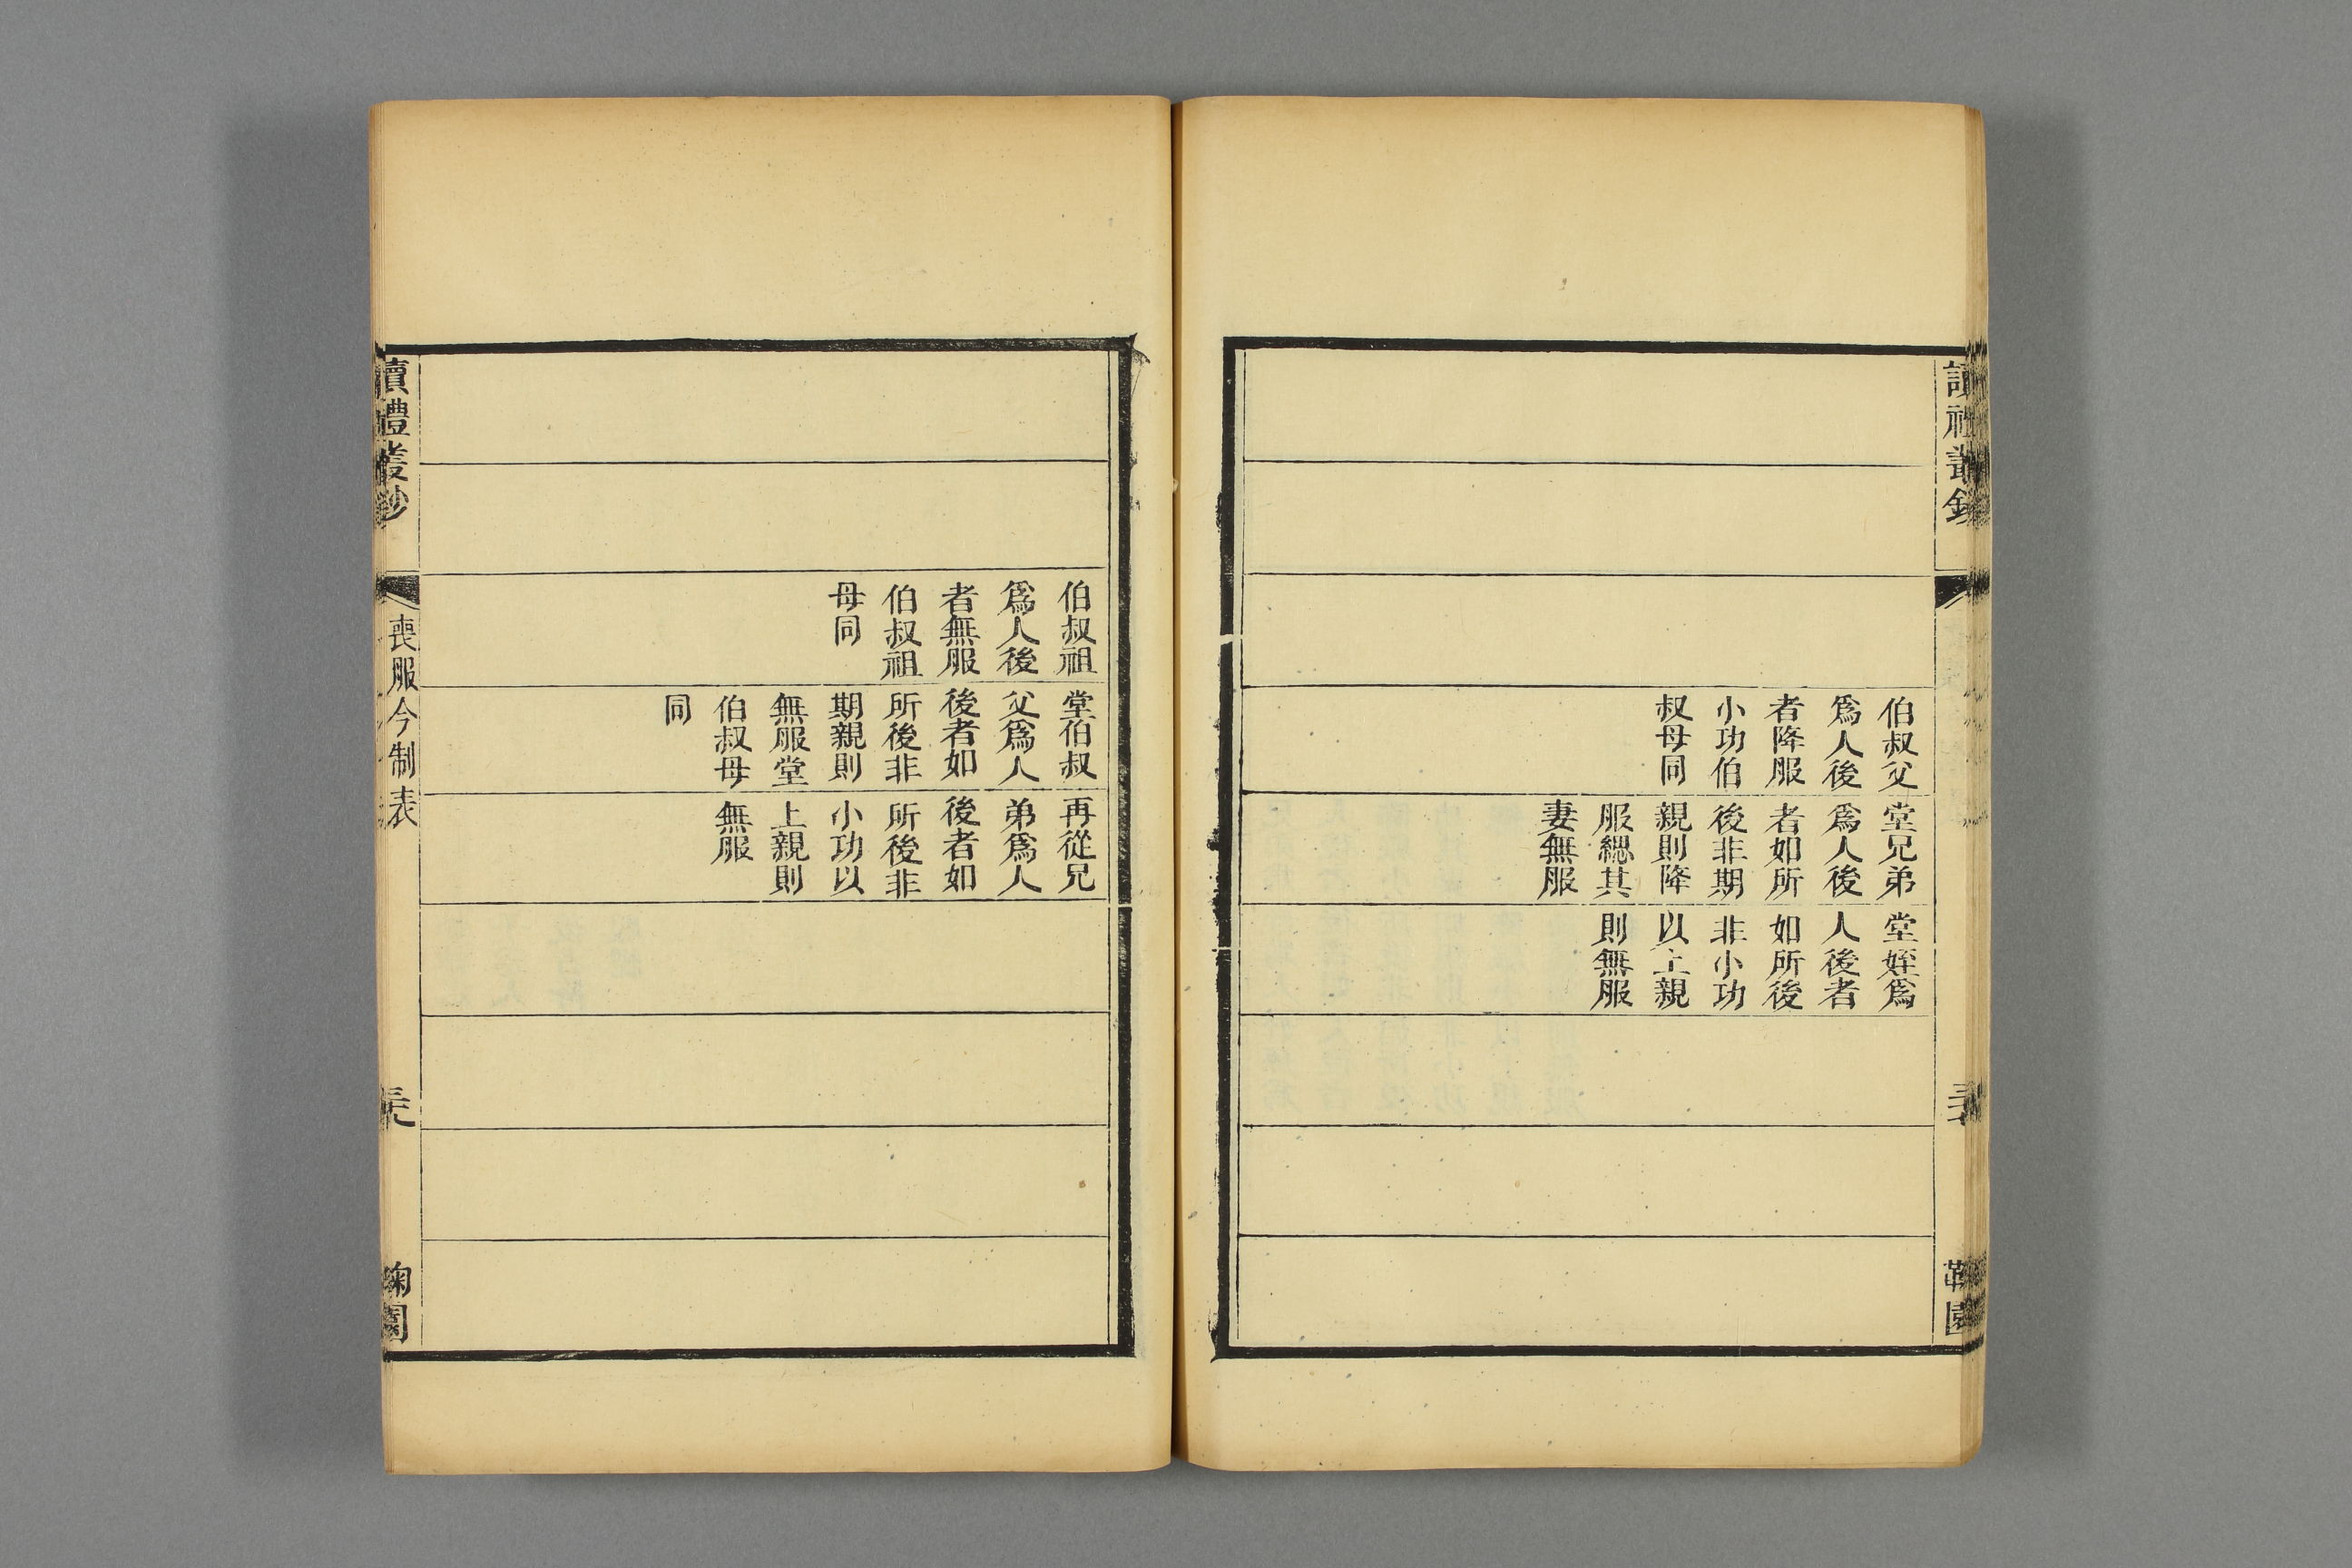 伯叔父
爲人後
者降服
小功伯
叔母同
堂兄弟
爲人後
者如所
後非期
親則降
服緦其
妻無服
堂姪爲
人後者
如所後
非小功
以上親
則無服
伯叔祖
爲人後
者無服
伯叔祖
母同
堂伯叔
父爲人
後者如
所後非
期親則
無服堂
伯叔母
同
再從兄
弟爲人
後者如
所後非
小功以
上親則
無服
讀禮叢鈔
喪服今制表
鞠園